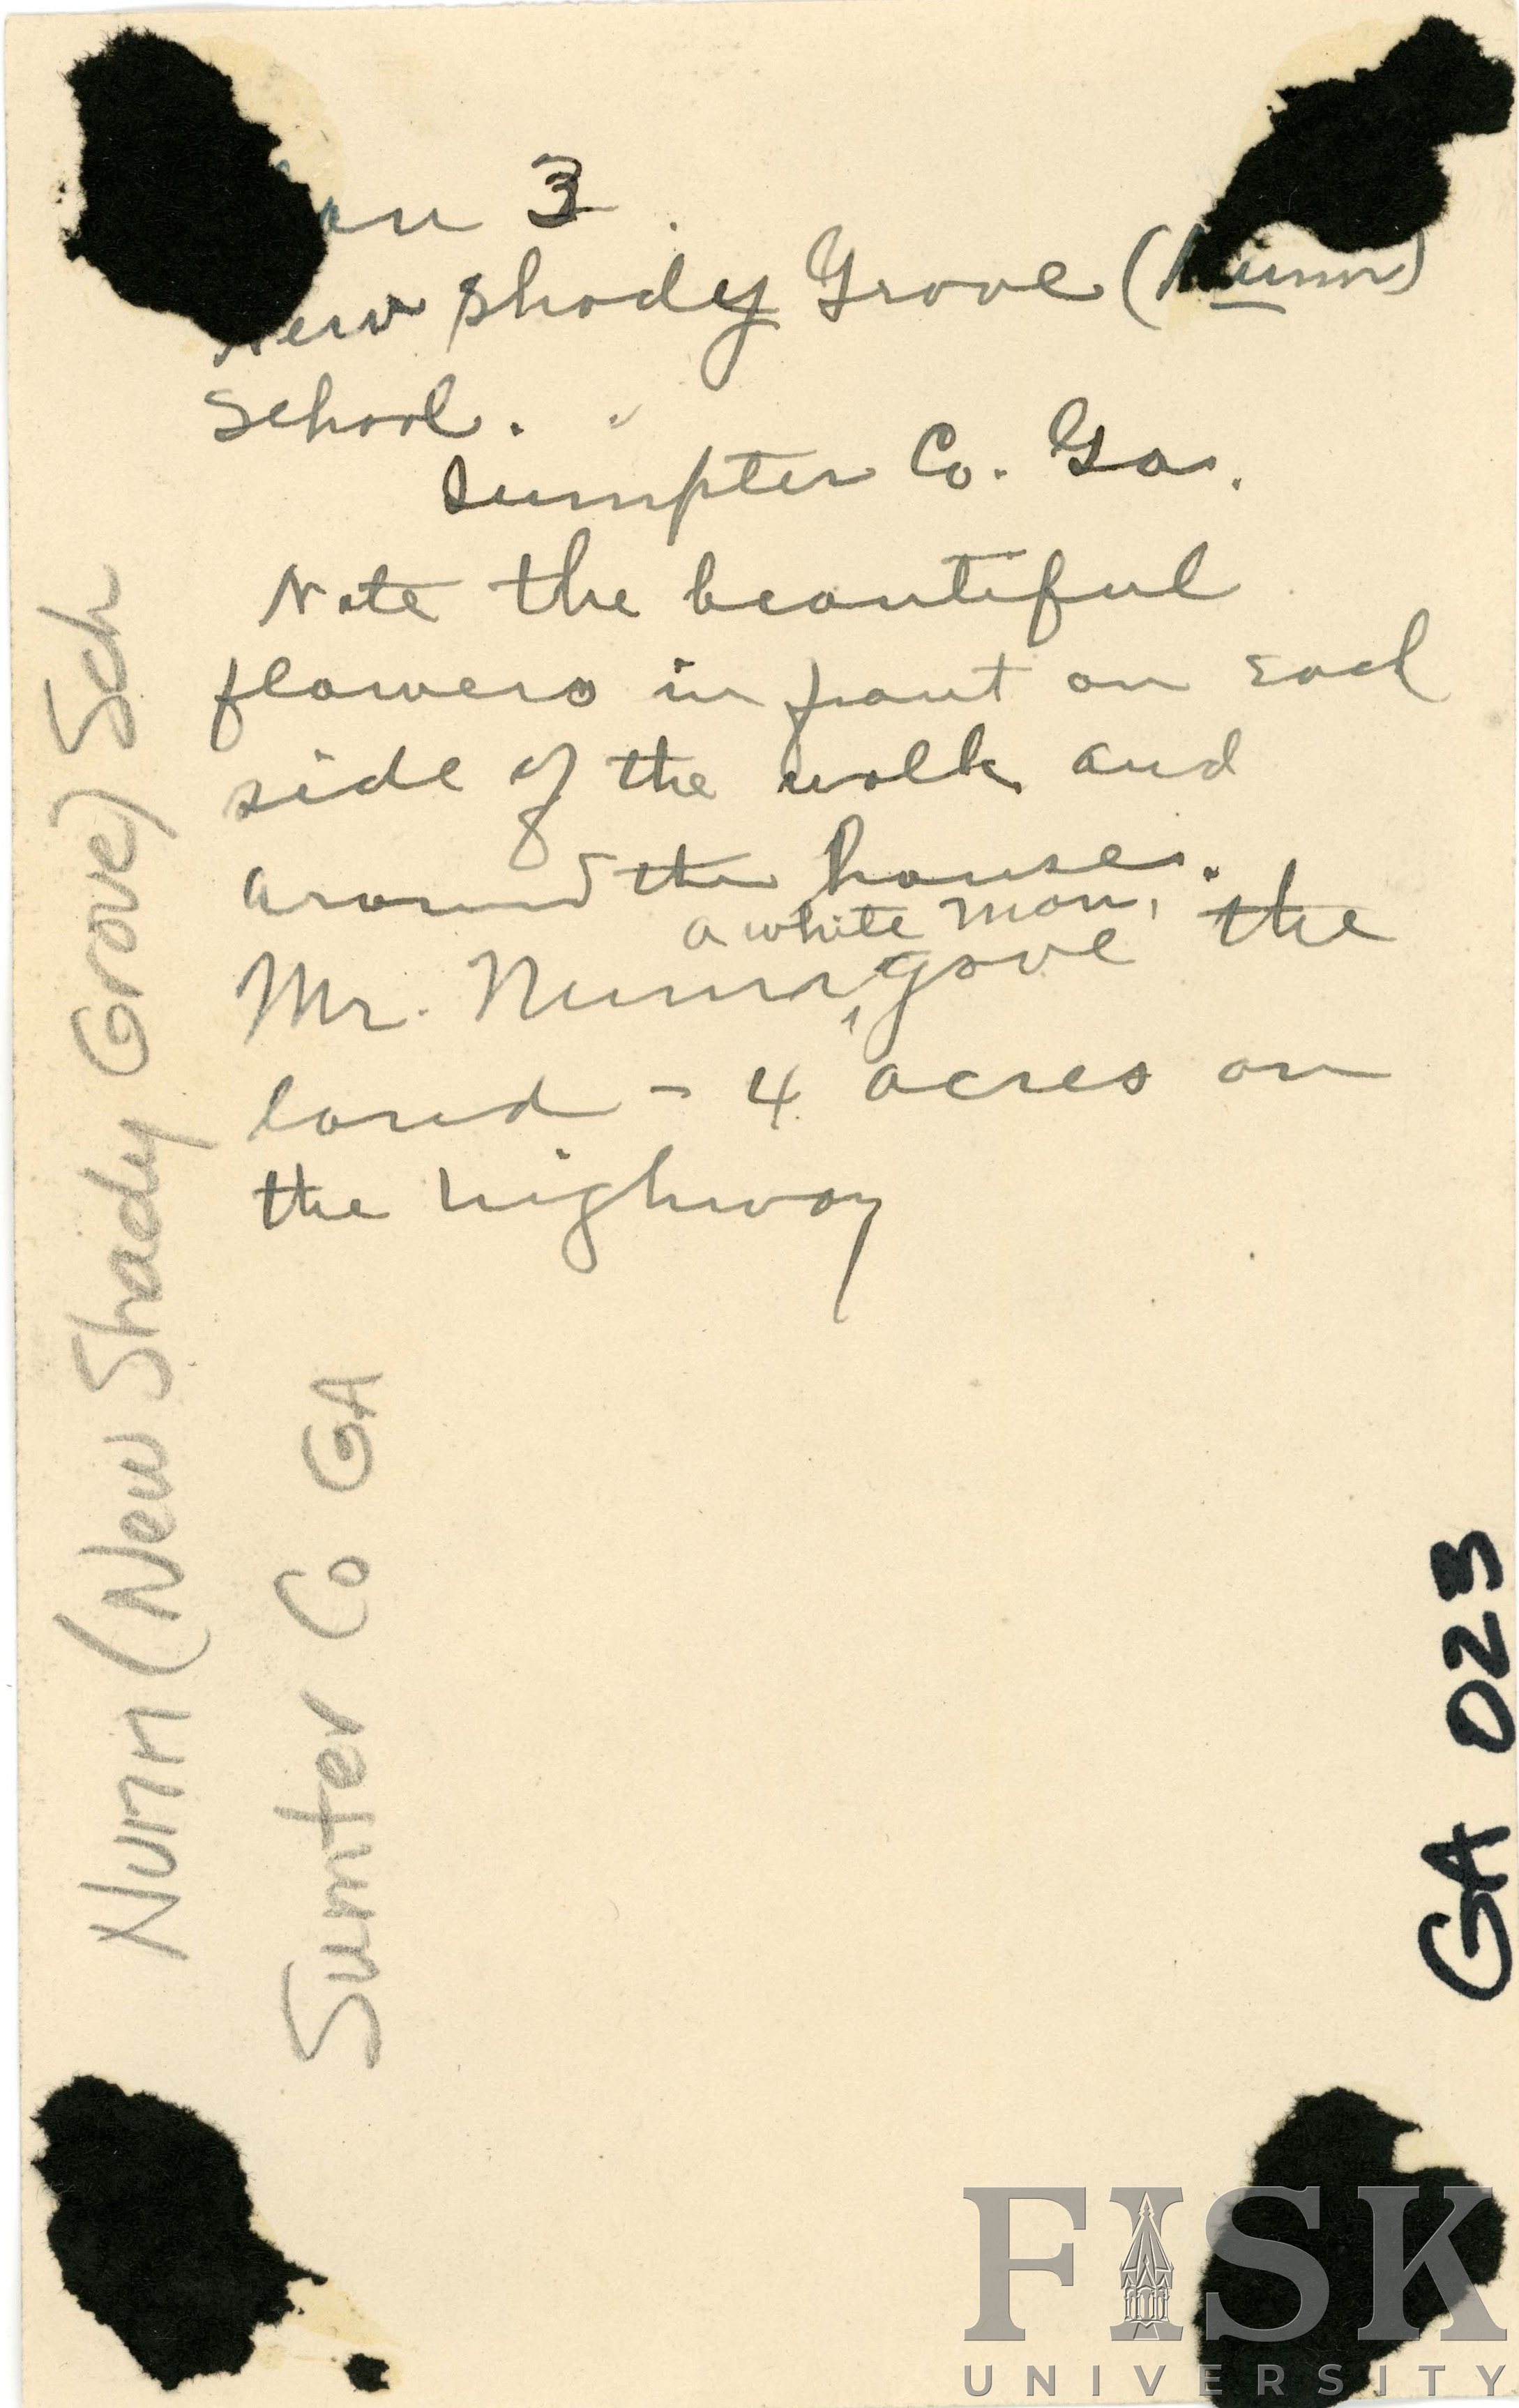 3
New Shady Grove (Nunn)
School.
Sumpter Co. Ga.
Note the beautiful
flowers in front on
side of the walk and
around the house.
a white man,
Mr. Nunn, gave the
land - 4 acres on
the highway
Nunn (New Shady Grove) Sch
Sumter Co GA
GA 023
FISK
UNIVERSITY